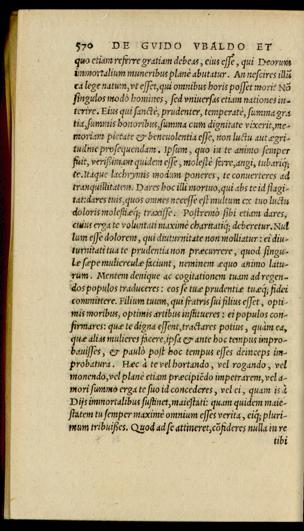 570 DE GVIDO VBALDO ET
quo etiam referre gratiam debeas, eius esse, qui Deorum
immortalium muneribus planè abutatur. An nescires illũ
ea lege natum, vt esset, qui omnibus horis posset mori? Nõ
singulos modò homines, sed vniuersas etiam nationes in-
terire. Eius qui sanctè, prudenter, temperatè, summa gra
tia, summis honoribus, summa cum dignitate vixerit, me-
moriam pietate & beneuolentia esse, non luctu aut ægri-
tudine prosequendam. Ipsum, quo in te animo semper
fuit, verißimam quidem esse, molestè ferre, angi, tubariq;
te. Itaque lachrymis modum poneres, te conuerteres ad
tranquillitatem. Dares hoc illi mortuo, qui abs te id flagi-
tat: dares tuis, quos omnes necesse est multum ex tuo luctu
doloris molestiæq; traxisse. Postremò sibi etiam dares,
cuius erga te voluntati maximè charitatiq; deberetur. Nul
lum esse dolorem, qui diuturnitate non molliatur: ei diu-
turnitati tua te prudentia non præcurrere, quod singu-
læ sæpe mulierculæ faciunt, neminem æquo animo latu-
rum. Mentem denique ac cogitationem tuam ad regen-
dos populos traduceres: eos se tuæ prudentiæ tuæq; fidei
committere. Filium tuum, qui fratris sui filius esset, opti-
mis moribus, optimis artibus institueres: ei populos con-
firmares: quæ te digna essent, tractares potius, quàm ea,
quæ alias mulieres facere, ipsa & ante hoc tempus impro-
bauisses, & paulò post hoc tempus esses deinceps im-
probatura. Hæc à te vel hortando, vel rogando, vel
monendo, vel planè etiam præcipiẽdo impetrarem, vel a-
mori summo erga te suo id concederes, vel ei, quam is à
Dijs immortalibus sustinet, maiestati: quam quidem maie-
statem tu semper maximè omnium esses verita, eiq; pluri-
mum tribuisses. Quod ad se attineret, cõfideres nulla in re
tibi